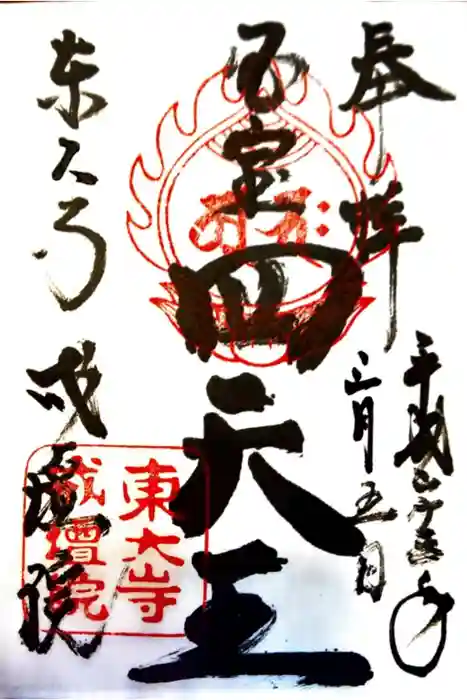 奉拝
平成二十五年
三月五日
国宝
四天王
東大寺
戒壇院
東大寺
戒壇院